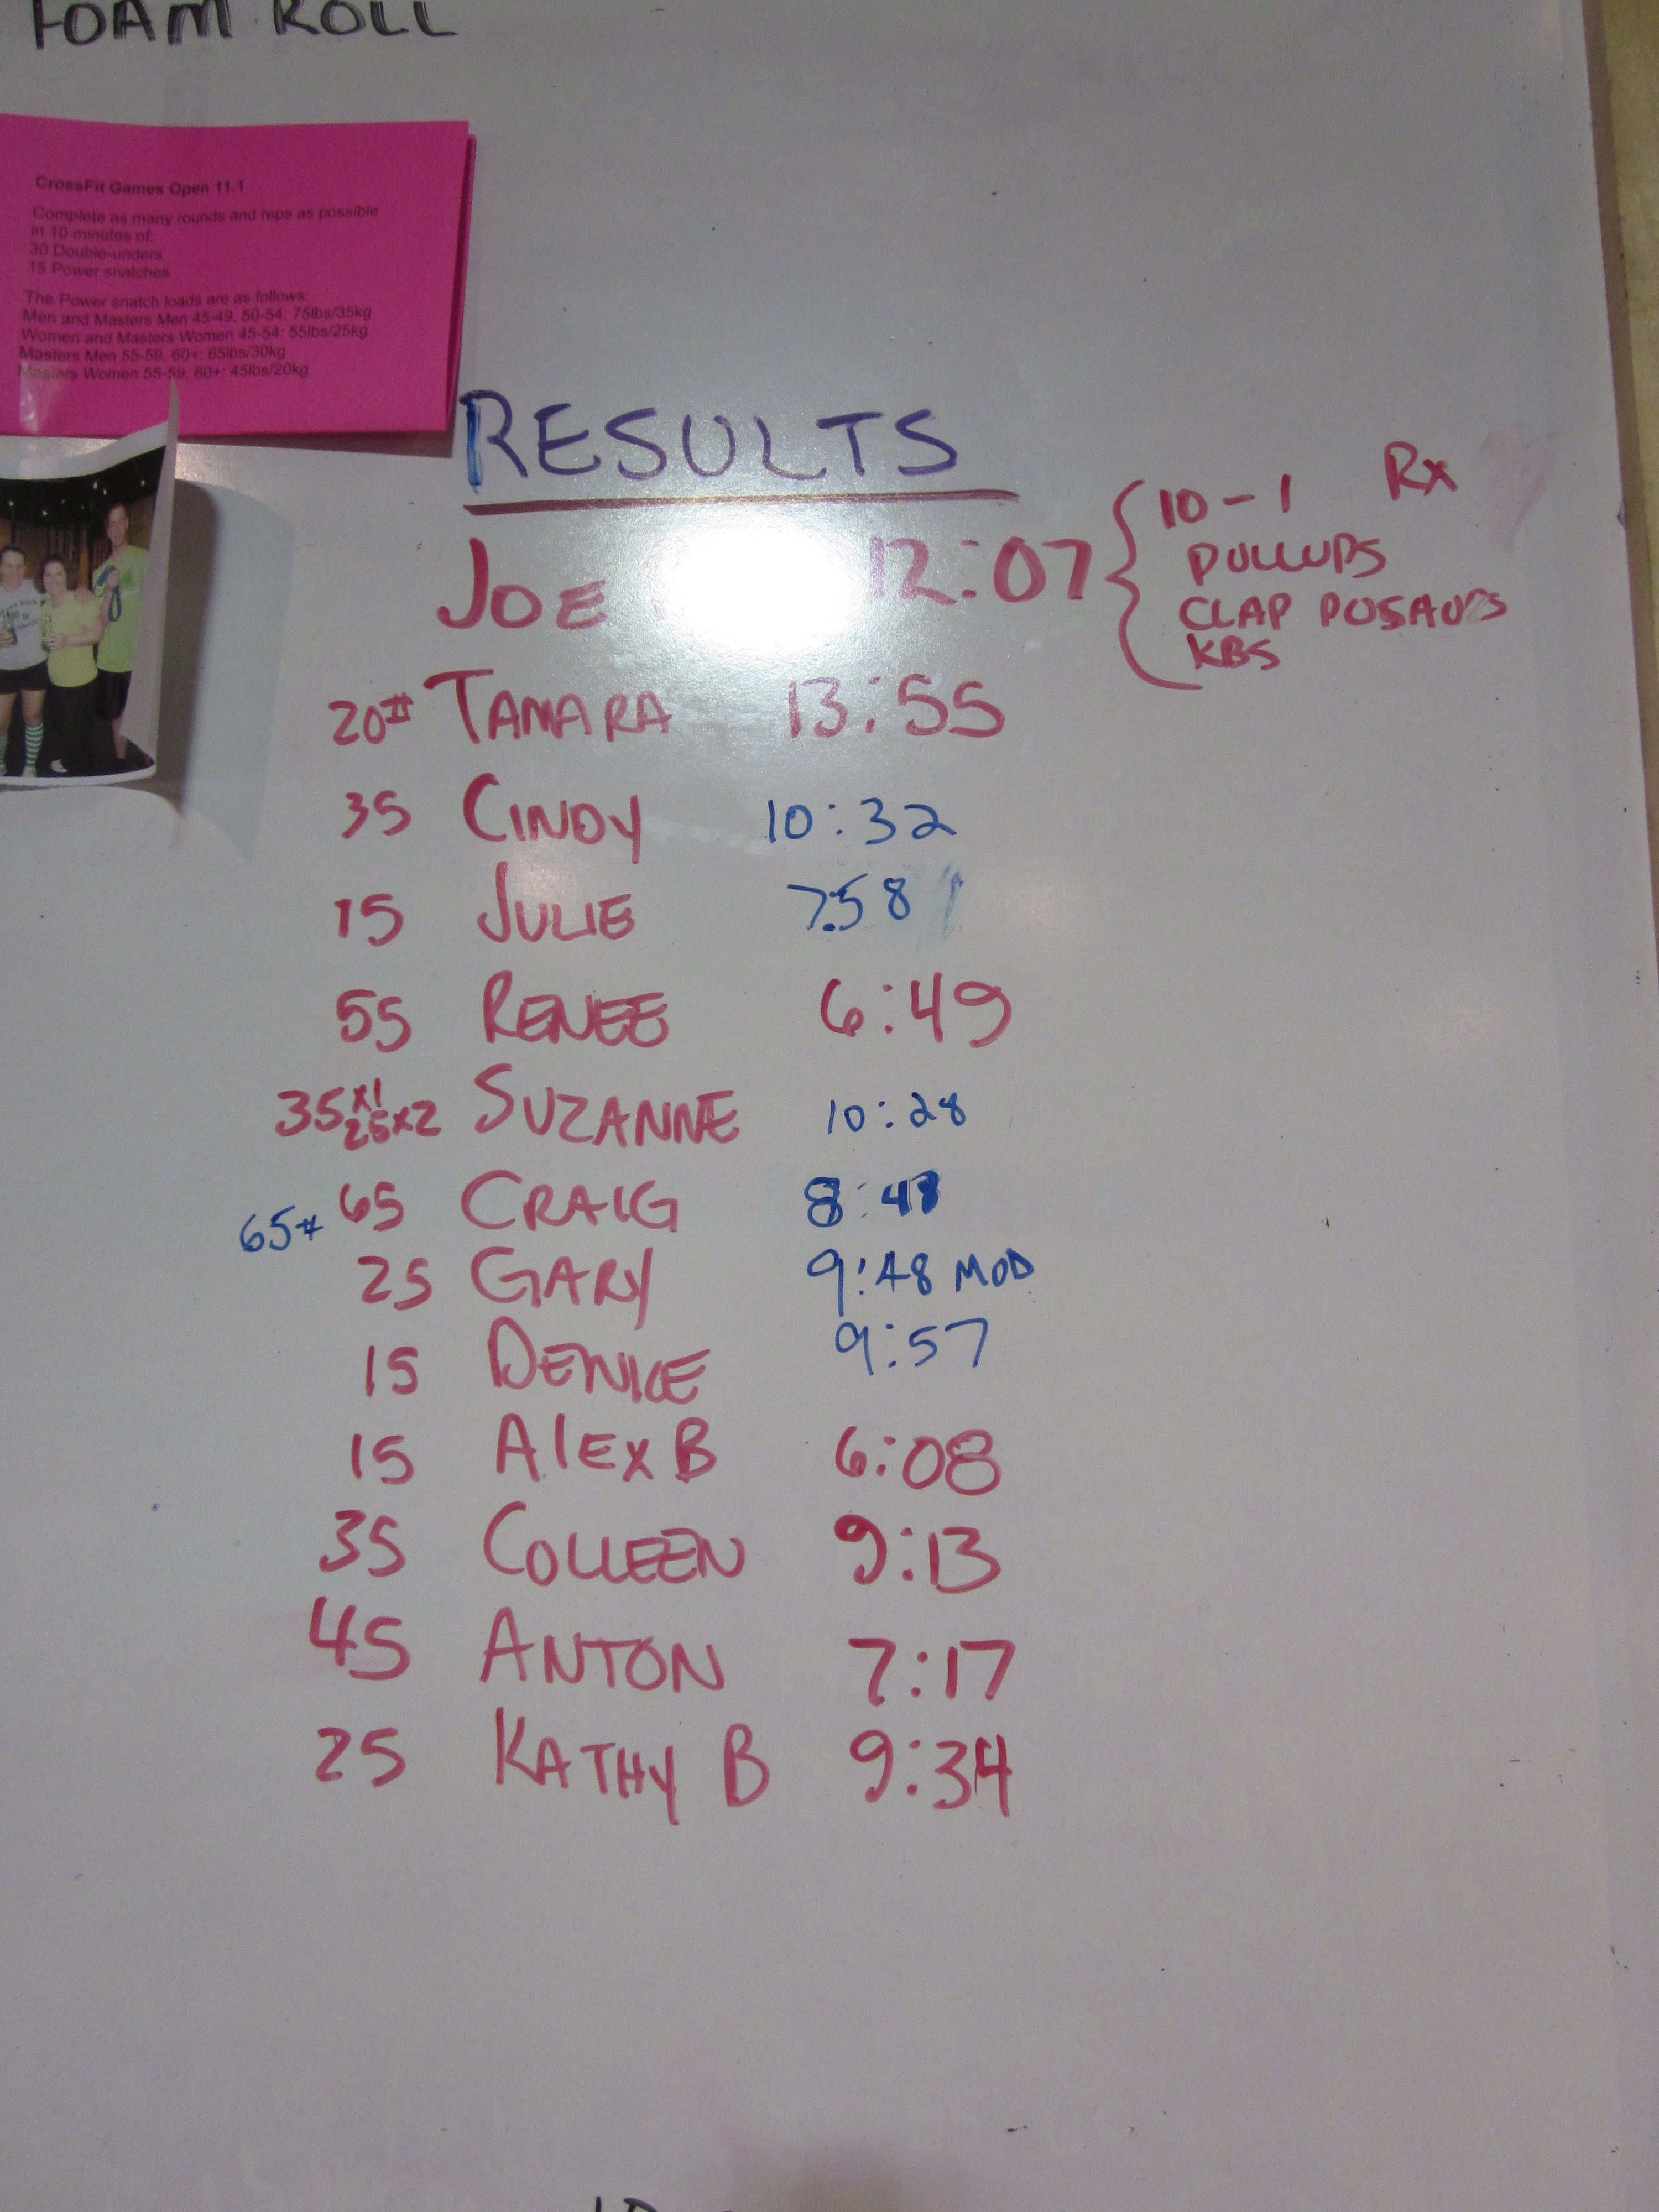 FOAM ROLL
CrossFit Games Open 11.1
Complete as many rounds and reps as possible
in 10 minutes of:
30 Double-unders
15 Power snatches
The Power snatch loads are as follows:
Men and Masters Men 45-49, 50-54: 75lbs/35kg
Women and Masters Women 45-54: 55lbs/25kg
Masters Men 55-59, 60+: 65lbs/30kg
Masters Women 55-59, 60+: 45lbs/20kg
RESULTS
JOE 12:07
10-1 Rx
PULLUPS
CLAP PUSHUPS
KBS
20# TAMARA 13:55
35 CINDY 10:32
15 JULIE 7:58
55 RENEE 6:49
35x1 25x2 SUZANNE 10:28
65# 65 CRAIG 8:48
25 GARY 9:48 MOD
15 DENICE 9:57
15 AlEX B 6:08
35 COLLEEN 9:13
45 ANTON 7:17
25 KATHY B 9:34